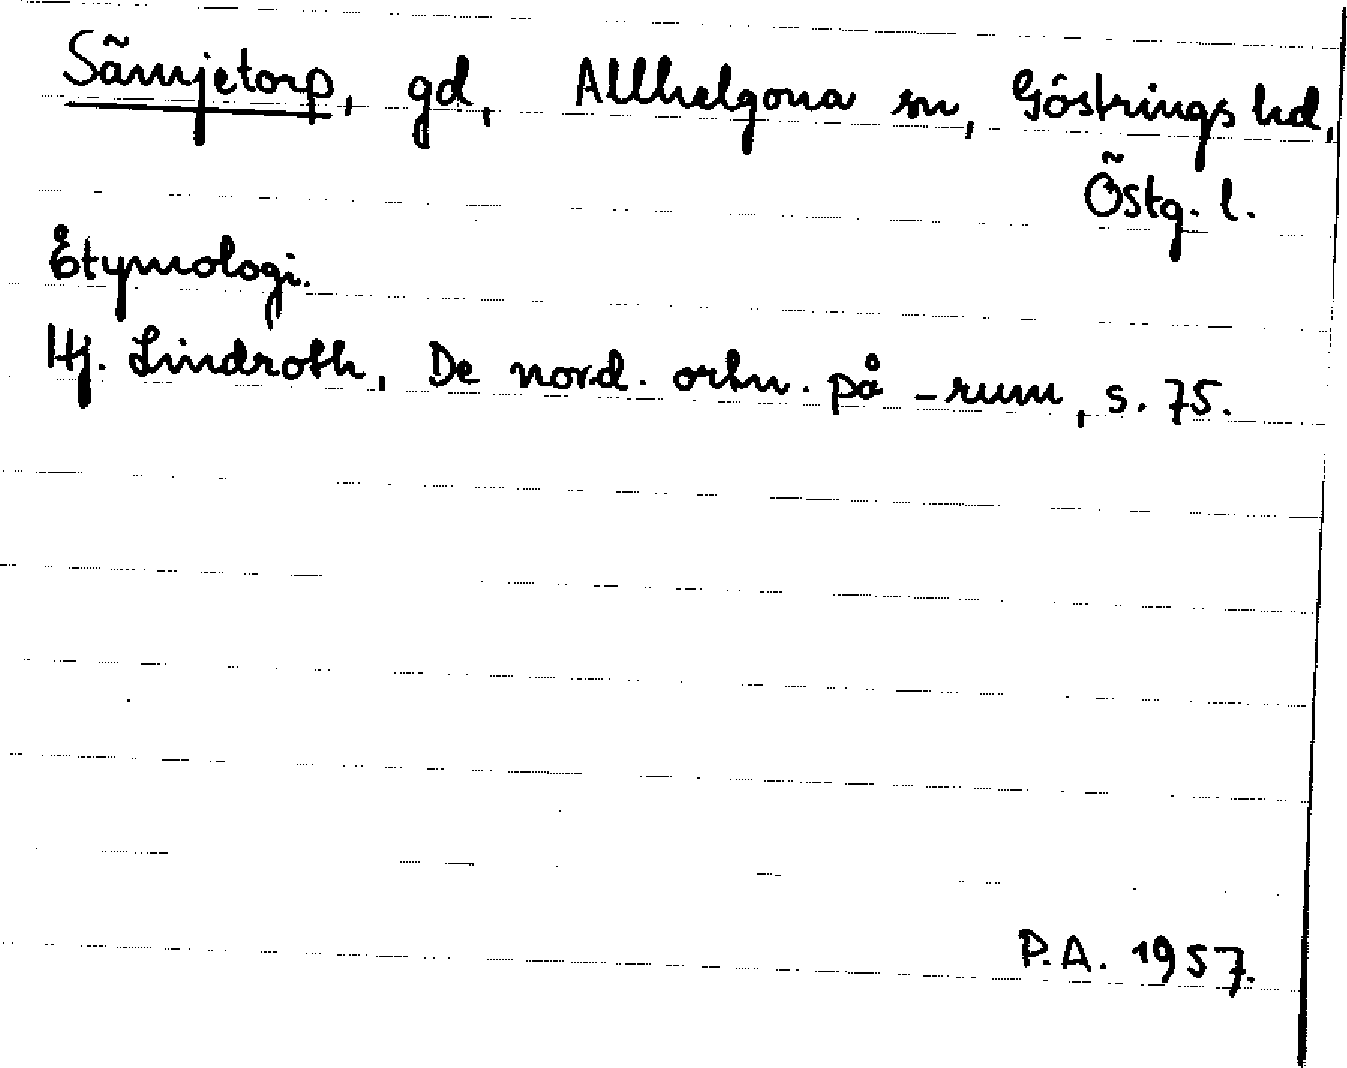 Sämjetorp, gd, Allhelgona sn, Göstrings hd,
Östg. l.
Etymologi.
Hj. Lindroth, De nord. ortn. på -rum, s. 75.
P.A. 1957.